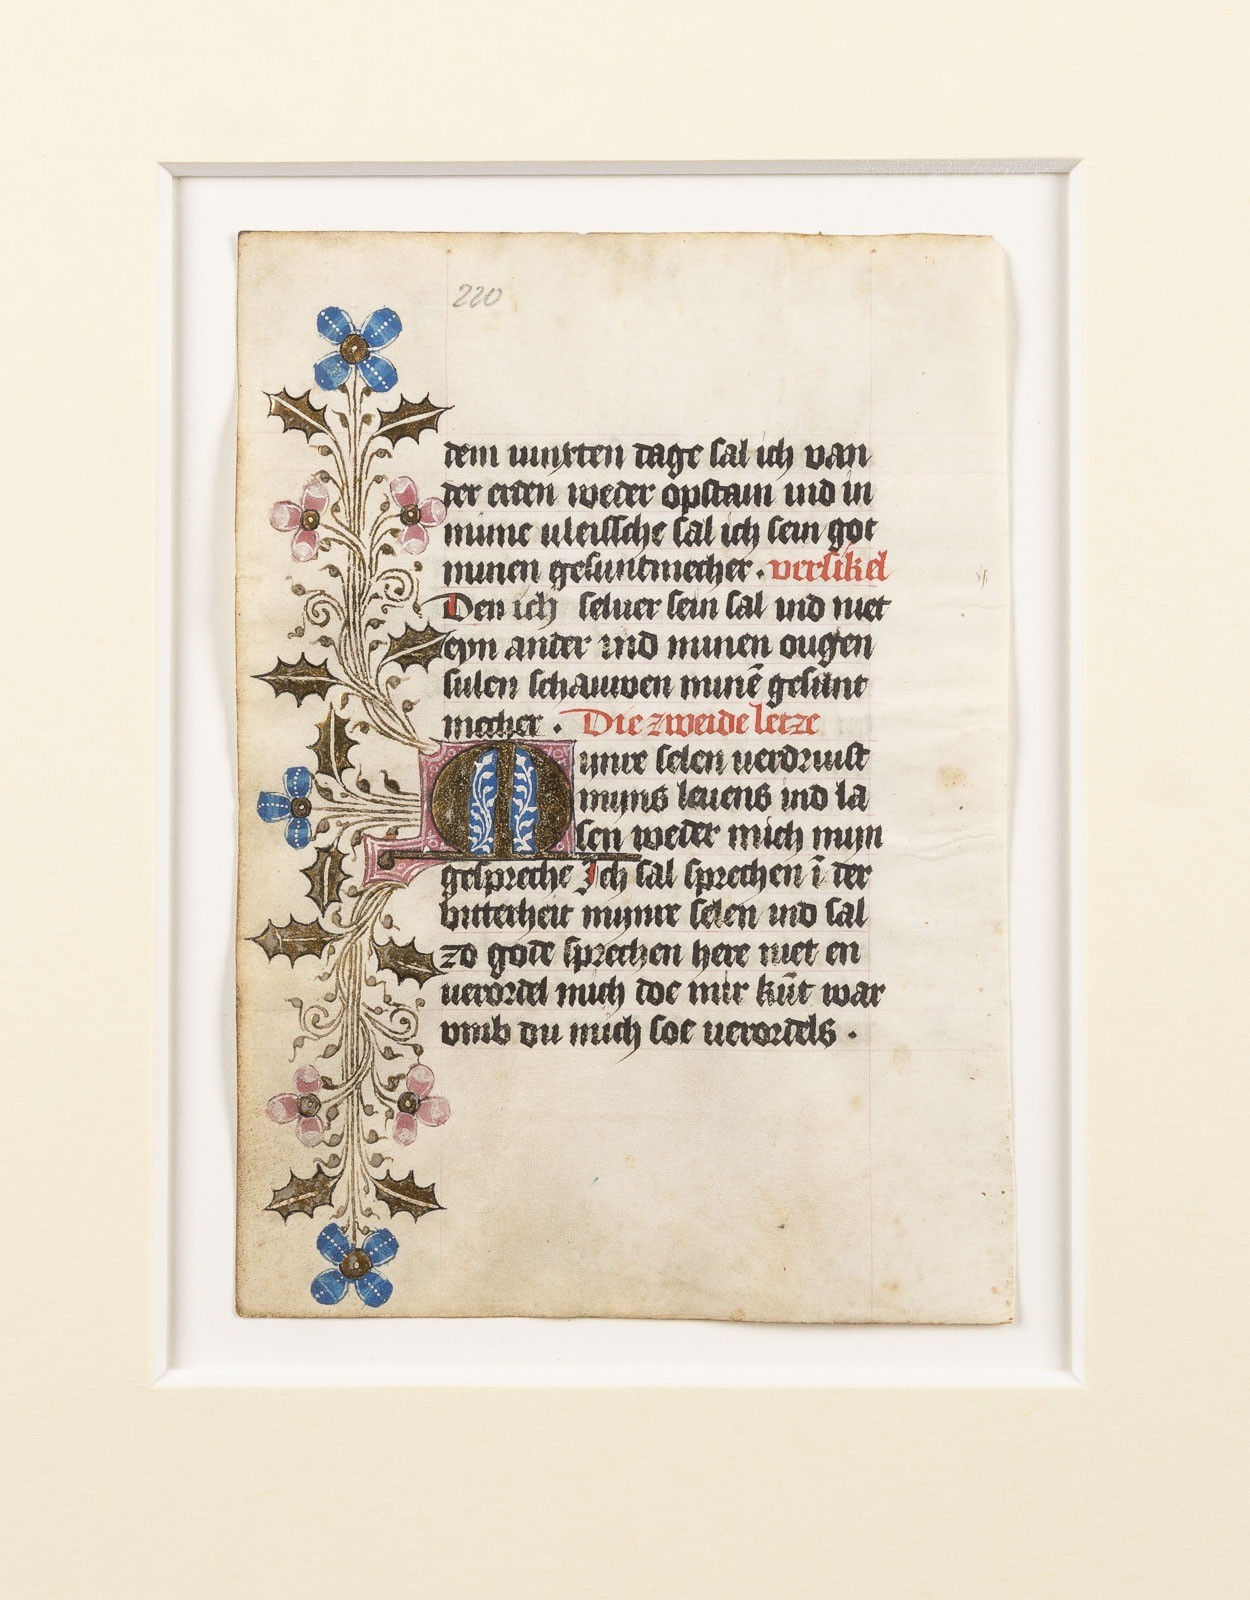 220
dem iunxten dage sal ich van
der erden weder opstain ind in
mime vleissche sal ich sein got
minen gesuntmecher . versikel
Den ich seluer sein sal ind niet
eyn ander ind minen ougen
sulen schauwen minē gesunt
mecher . Die zweide letze
Mynre selen verdruist
myns leuens ind la
sen weder mich myn
gespreche Ich sal sprechen ī der
bitterheit mynre selen ind sal
zo gode sprechen here niet en
verordel mich doe mir kūt war
vmb du mich soe verordels .